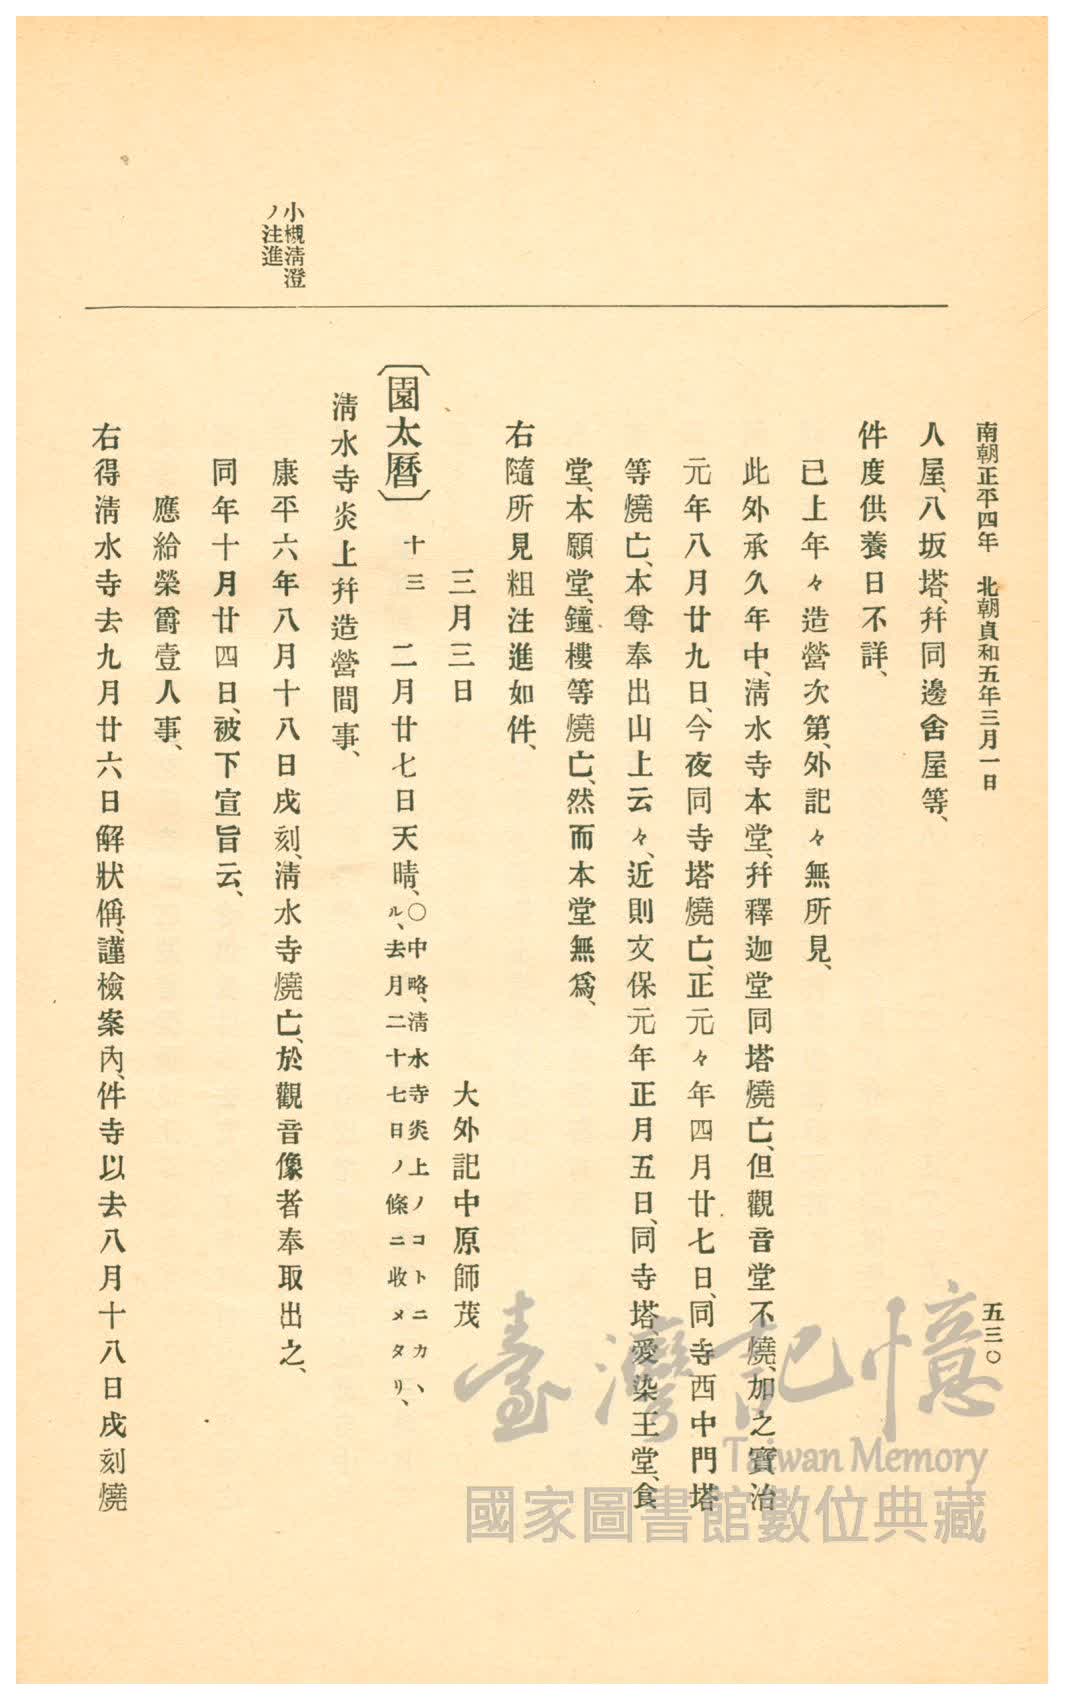 南朝正平四年　北朝貞和五年三月一日
五三〇
人屋、八坂塔、幷同邊舍屋等、
件度供養日不詳、
已上年々造營次第、外記々無所見、
此外承久年中、淸水寺本堂、幷釋迦堂同塔燒亡、但觀音堂不燒、加之寶治
元年八月廿九日、今夜同寺塔燒亡、正元々年四月廿七日、同寺西中門塔
等燒亡、本尊奉出山上云々、近則文保元年正月五日、同寺塔、愛染王堂、食
堂、本願堂、鐘樓等燒亡、然而本堂無爲、
右隨所見粗注進如件、
三月三日　大外記中原師茂
〔園太曆〕十三　二月廿七日天晴、〇中略、淸水寺炎上ノコトニカヽ
ル、去月二十七日ノ條ニ收メタリ、
淸水寺炎上幷造營間事、
小槻淸澄
ノ注進
康平六年八月十八日戌刻、淸水寺燒亡、於觀音像者奉取出之、
同年十月廿四日、被下宣旨云、
應給榮爵壹人事、
右得淸水寺去九月廿六日解狀偁、謹檢案內、件寺以去八月十八日戌刻燒
臺灣記憶
Taiwan Memory
國家圖書館數位典藏